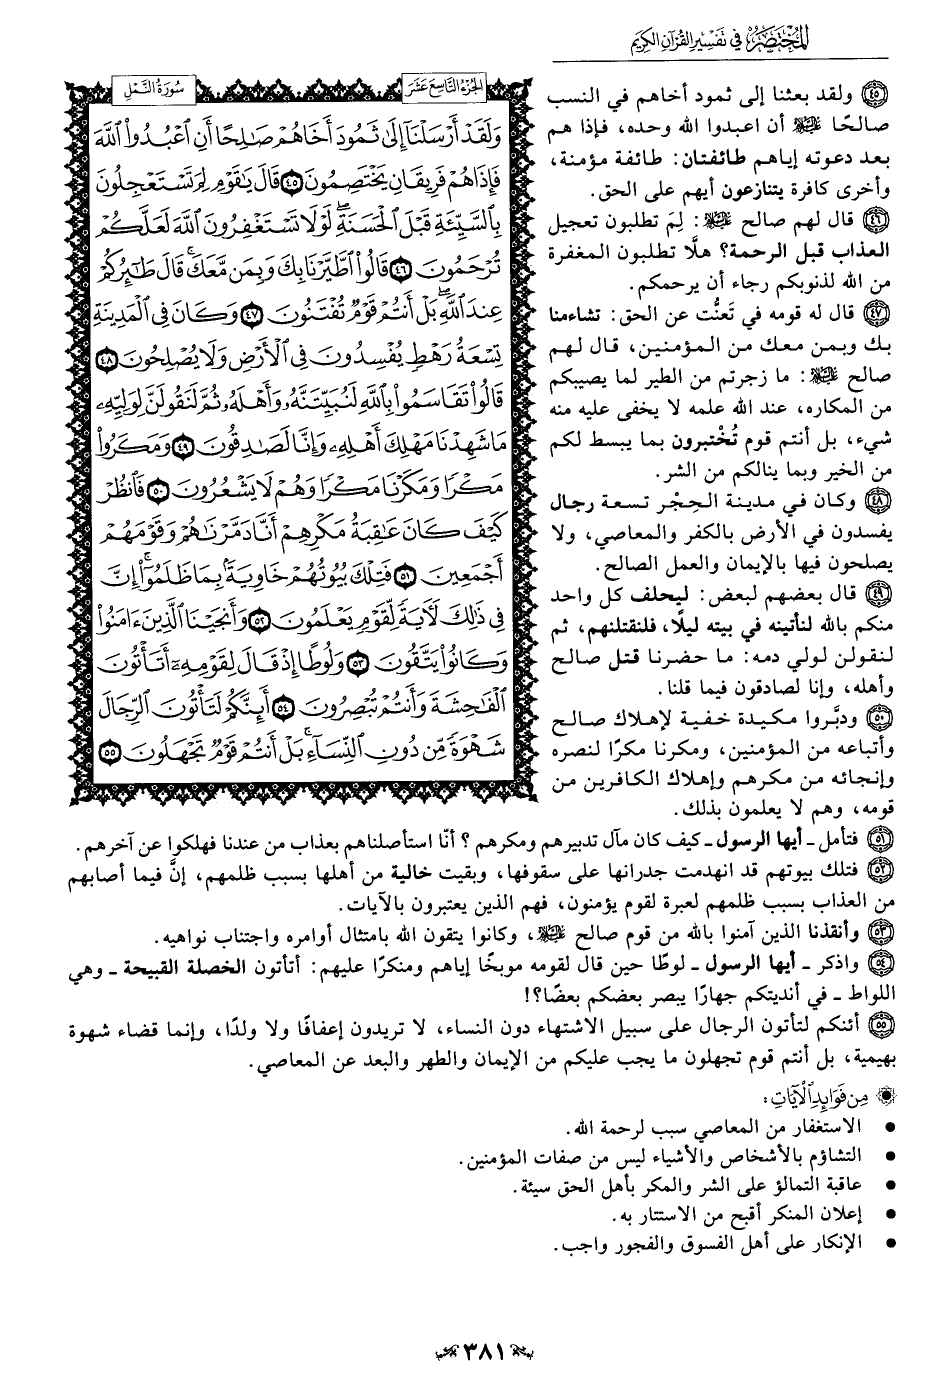 المختصر في تفسير القرآن الكريم
الجزء التاسع عشر
سورة النمل
وَلَقَدْ أَرْسَلْنَآ إِلَىٰ ثَمُودَ أَخَاهُمْ صَٰلِحًا أَنِ ٱعْبُدُوا۟ ٱللَّهَ
فَإِذَا هُمْ فَرِيقَانِ يَخْتَصِمُونَ ٤٥ قَالَ يَٰقَوْمِ لِمَ تَسْتَعْجِلُونَ
بِٱلسَّيِّئَةِ قَبْلَ ٱلْحَسَنَةِ ۖ لَوْلَا تَسْتَغْفِرُونَ ٱللَّهَ لَعَلَّكُمْ
تُرْحَمُونَ ٤٦ قَالُوا۟ ٱطَّيَّرْنَا بِكَ وَبِمَن مَّعَكَ ۚ قَالَ طَٰٓئِرُكُمْ
عِندَ ٱللَّهِ ۖ بَلْ أَنتُمْ قَوْمٌ تُفْتَنُونَ ٤٧ وَكَانَ فِى ٱلْمَدِينَةِ
تِسْعَةُ رَهْطٍ يُفْسِدُونَ فِى ٱلْأَرْضِ وَلَا يُصْلِحُونَ ٤٨
قَالُوا۟ تَقَاسَمُوا۟ بِٱللَّهِ لَنُبَيِّتَنَّهُۥ وَأَهْلَهُۥ ثُمَّ لَنَقُولَنَّ لِوَلِيِّهِۦ
مَا شَهِدْنَا مَهْلِكَ أَهْلِهِۦ وَإِنَّا لَصَٰدِقُونَ ٤٩ وَمَكَرُوا۟
مَكْرًا وَمَكَرْنَا مَكْرًا وَهُمْ لَا يَشْعُرُونَ ٥٠ فَٱنظُرْ
كَيْفَ كَانَ عَٰقِبَةُ مَكْرِهِمْ أَنَّا دَمَّرْنَٰهُمْ وَقَوْمَهُمْ
أَجْمَعِينَ ٥١ فَتِلْكَ بُيُوتُهُمْ خَاوِيَةًۢ بِمَا ظَلَمُوٓا۟ ۗ إِنَّ
فِى ذَٰلِكَ لَءَايَةً لِّقَوْمٍ يَعْلَمُونَ ٥٢ وَأَنجَيْنَا ٱلَّذِينَ ءَامَنُوا۟
وَكَانُوا۟ يَتَّقُونَ ٥٣ وَلُوطًا إِذْ قَالَ لِقَوْمِهِۦٓ أَتَأْتُونَ
ٱلْفَٰحِشَةَ وَأَنتُمْ تُبْصِرُونَ ٥٤ أَئِنَّكُمْ لَتَأْتُونَ ٱلرِّجَالَ
شَهْوَةً مِّن دُونِ ٱلنِّسَآءِ ۚ بَلْ أَنتُمْ قَوْمٌ تَجْهَلُونَ ٥٥
٤٥ ولقد بعثنا إلى ثمود أخاهم في النسب
صالحًا عليه السلام أن اعبدوا الله وحده، فإذا هم
بعد دعوته إياهم طائفتان: طائفة مؤمنة،
وأخرى كافرة يتنازعون أيهم على الحق.
٤٦ قال لهم صالح عليه السلام: لِمَ تطلبون تعجيل
العذاب قبل الرحمة؟ هلَّا تطلبون المغفرة
من الله لذنوبكم رجاء أن يرحمكم.
٤٧ قال له قومه في تَعنُّت عن الحق: تشاءمنا
بك وبمن معك من المؤمنين، قال لهم
صالح عليه السلام: ما زجرتم من الطير لما يصيبكم
من المكاره، عند الله علمه لا يخفى عليه منه
شيء، بل أنتم قوم تُخْتبرون بما يبسط لكم
من الخير وبما ينالكم من الشر.
٤٨ وكان في مدينة الحِجْر تسعة رجال
يفسدون في الأرض بالكفر والمعاصي، ولا
يصلحون فيها بالإيمان والعمل الصالح.
٤٩ قال بعضهم لبعض: ليحلف كل واحد
منكم بالله لنأتينه في بيته ليلًا، فلنقتلنهم، ثم
لنقولن لولي دمه: ما حضرنا قتل صالح
وأهله، وإنا لصادقون فيما قلنا.
٥٠ ودبَّروا مكيدة خفية لإهلاك صالح
وأتباعه من المؤمنين، ومكرنا مكرًا لنصره
وإنجائه من مكرهم وإهلاك الكافرين من
قومه، وهم لا يعلمون بذلك.
٥١ فتأمل - أيها الرسول - كيف كان مآل تدبيرهم ومكرهم؟ أنّا استأصلناهم بعذاب من عندنا فهلكوا عن آخرهم.
٥٢ فتلك بيوتهم قد انهدمت جدرانها على سقوفها، وبقيت خالية من أهلها بسبب ظلمهم، إنَّ فيما أصابهم
من العذاب بسبب ظلمهم لعبرة لقوم يؤمنون، فهم الذين يعتبرون بالآيات.
٥٣ وأنقذنا الذين آمنوا بالله من قوم صالح عليه السلام، وكانوا يتقون الله بامتثال أوامره واجتناب نواهيه.
٥٤ واذكر - أيها الرسول - لوطًا حين قال لقومه موبخًا إياهم ومنكرًا عليهم: أتأتون الخصلة القبيحة - وهي
اللواط - في أنديتكم جهارًا يبصر بعضكم بعضًا؟!
٥٥ أئنكم لتأتون الرجال على سبيل الاشتهاء دون النساء، لا تريدون إعفافًا ولا ولدًا، وإنما قضاء شهوة
بهيمية، بل أنتم قوم تجهلون ما يجب عليكم من الإيمان والطهر والبعد عن المعاصي.
من فوائد الآيات:
● الاستغفار من المعاصي سبب لرحمة الله.
● التشاؤم بالأشخاص والأشياء ليس من صفات المؤمنين.
● عاقبة التمالؤ على الشر والمكر بأهل الحق سيئة.
● إعلان المنكر أقبح من الاستتار به.
● الإنكار على أهل الفسوق والفجور واجب.
٣٨١